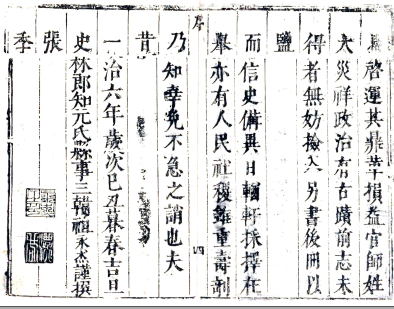 啓運其鼎革損益官師姓
大災祥政治有古蹟前志未
得者無妨撿入另書後冊以
鹽
而信史備異日輶軒採擇在
舉亦有人民社稷雖重壽剞
序
四
乃知幸免不急之誚也夫
昔
一治六年歲次己丑暮春吉旦
史林郎知元氏縣事三韓祖永杰謹撰
張
季